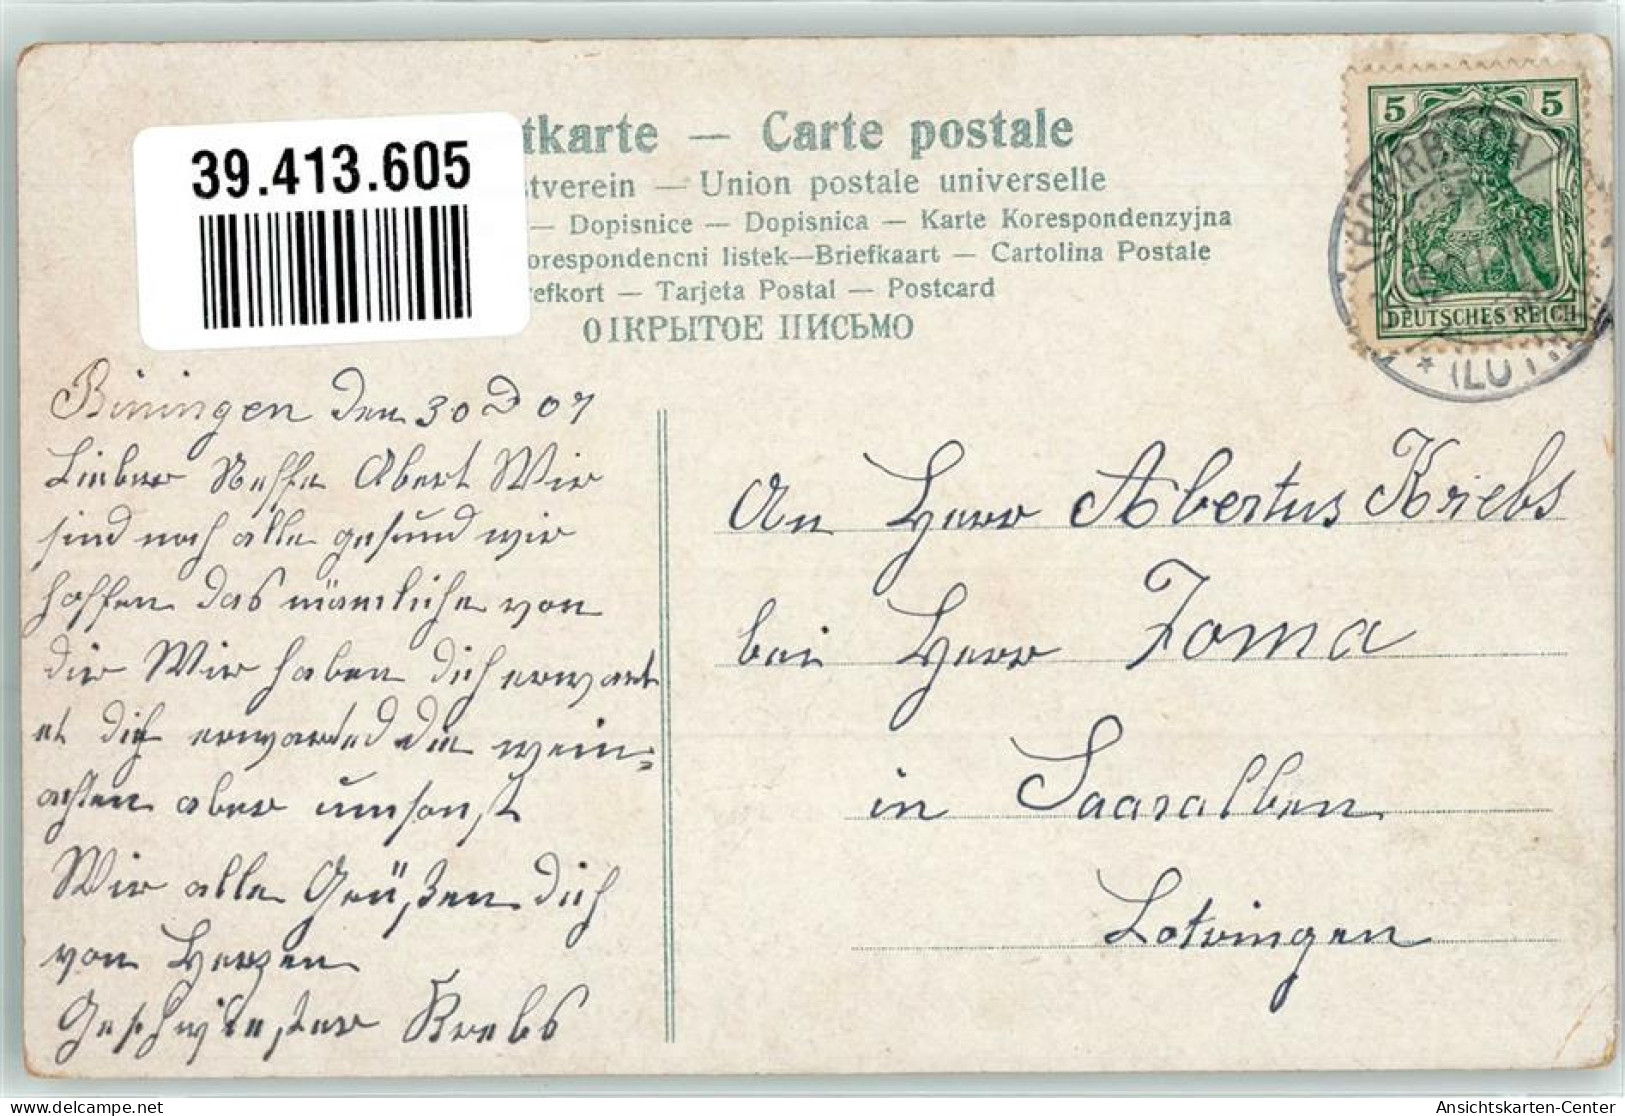 39.413.605
tkarte — Carte postale
stverein — Union postale universelle
— Dopisnice — Dopisnica — Karte Korespondenzyjna
orespondencni listek—Briefkaart — Cartolina Postale
efkort — Tarjeta Postal — Postcard
ОТКРЫТОЕ ПИСЬМО
5 5
DEUTSCHES REICH
Biningen den 30 D 07
Lieber Neffe Abert Wir
sind noch alle gesund wir
hoffen das nämliche von
dir Wir haben dich erwart
et dich erwarted die wein-
achten aber umsonst
Wir alle Grüßen dich
von Herzen
Geschwister Krebs
An Herr Abertus Kriebs
bei Herr Toma
in Saaralben
Lotringen
www.delcampe.net
Ansichtskarten-Center